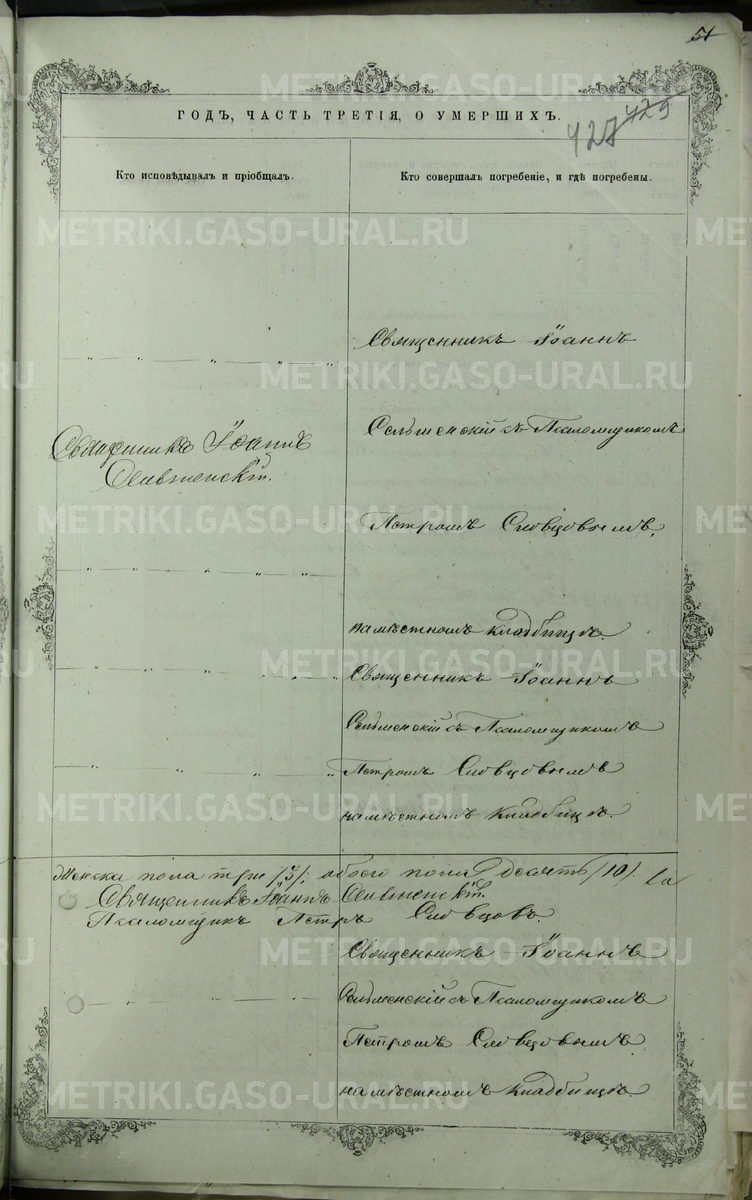 51
ГОДЪ, ЧАСТЬ ТРЕТІЯ, О УМЕРШИХЪ.
427 429
Кто исповѣдывалъ и пріобщалъ.
Кто совершалъ погребеніе, и гдѣ погребены.
Священникъ Іоаннъ
Священникъ Іоаннъ
Сельменскій съ Псаломщикомъ
Петромъ Словцовымъ,
на мѣстномъ кладбищѣ.
Священникъ Іоаннъ
Сельменскій съ Псаломщикомъ
Петромъ Словцовымъ
на мѣстномъ кладбищѣ.
Женска пола три /3/. обоего пола десять /10/.
Священникъ Іоаннъ
Псаломщикъ Петръ Словцовъ.
Священникъ Іоаннъ
Сельменскій съ Псаломщикомъ
Петромъ Словцовымъ
на мѣстномъ кладбищѣ.
METRIKI.GASO-URAL.RU